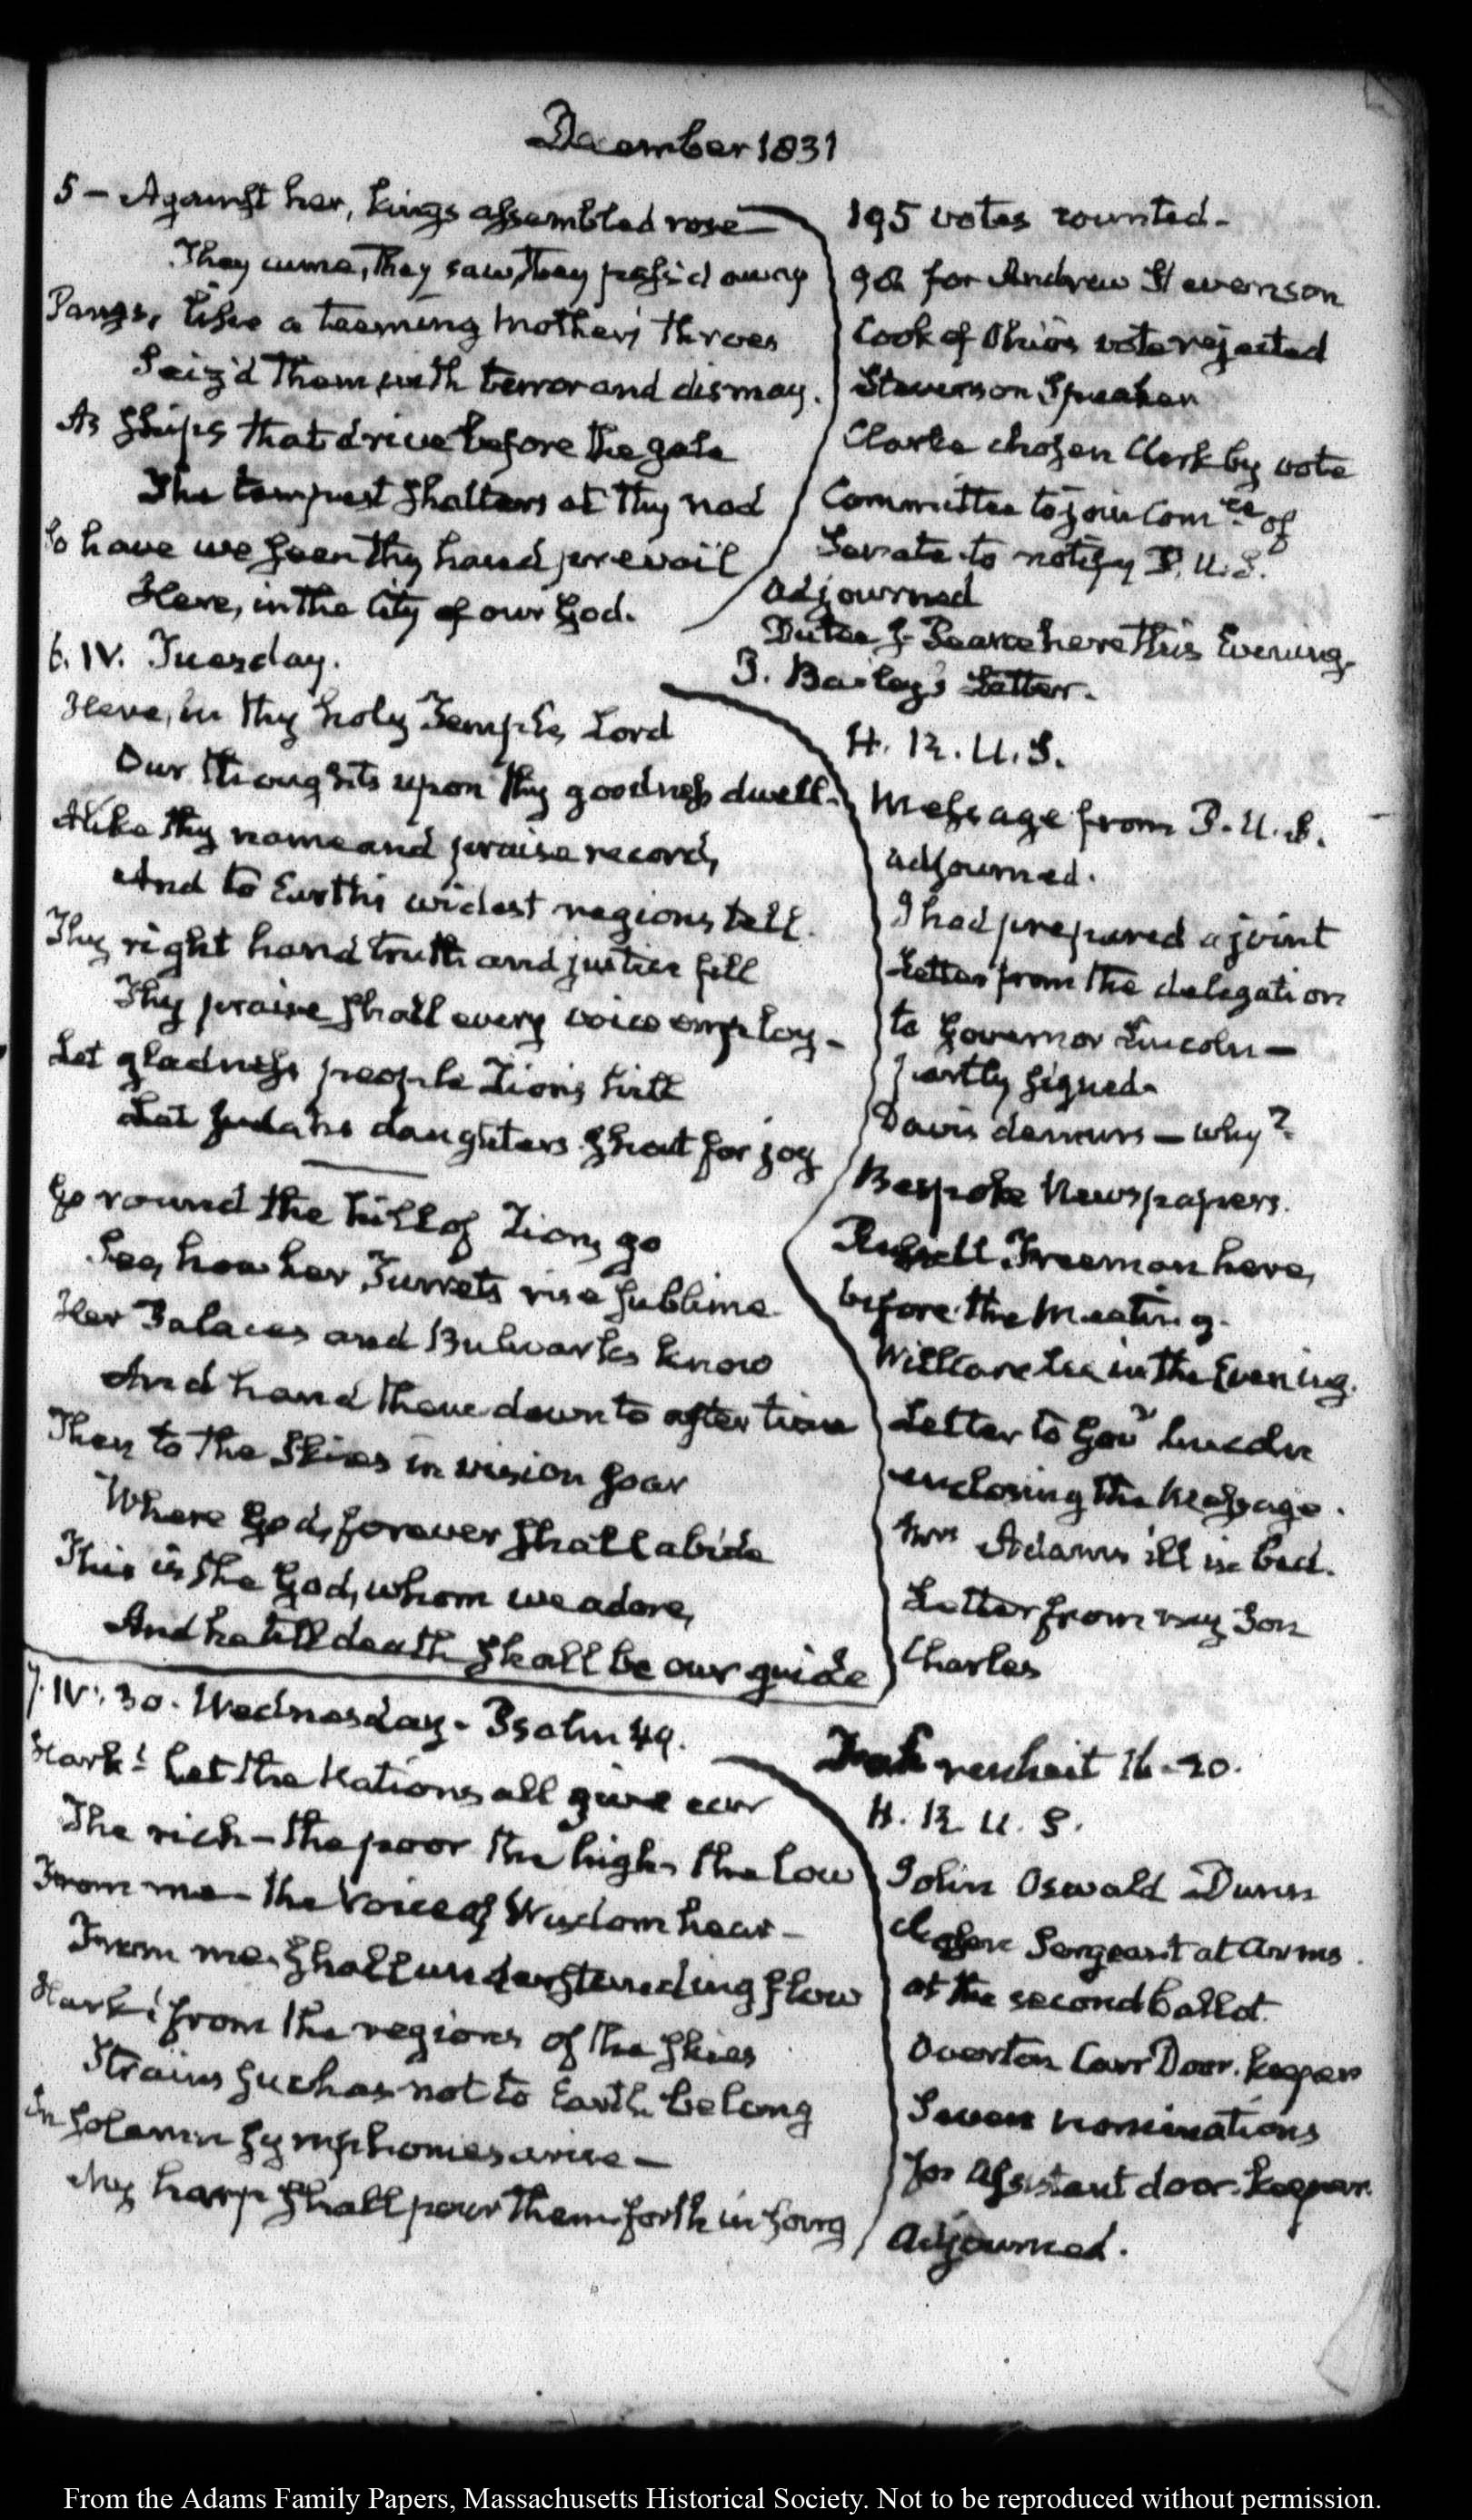 December 1831
5 - Against her, kings assembled rose
They came, they saw, they pass'd away
Pangs, like a teeming mother's throes
Seiz'd them, with terror and dismay.
As ships that drive before the gale
The tempest shatters at thy nod
So have we seen thy hand prevail
Here, in the City of our God.
195 votes counted -
98 for Andrew Stevenson
Cook of Ohio's vote rejected
Stevenson Speaker
Clarke chosen Clerk by vote
Committee to join Com.ee of
Senate to notify P. U. S.
Adjourned
Dutee J. Pearce here this Evening.
J. Bailey's Letter.
6. IV. Tuesday.
Here, in thy holy Temple, Lord
Our thoughts upon thy goodness dwell.
Alike thy name and praise record,
And to Earth's widest regions tell.
Thy right hand truth and justice fill
Thy praise shall every voice employ -
Let gladness people Zion's hill
Let Judah's daughters shout for joy
Go round the hill of Zion, go
See, how her Turrets rise sublime
Her Palaces and Bulwarks know
And hand them down to after time
Then to the Skies in vision soar
Where God, forever shall abide
This is the God, whom we adore,
And he till death shall be our guide
H. R. U. S.
Message from P. U. S.
adjourned.
I had prepared a joint
Letter from the delegation
to Governor Lincoln -
partly signed
Davis demurs - why?
Bespoke Newspapers.
Russell Freeman here,
before the Meeting.
Will care tea in the Evening.
Letter to Gov.r Lincoln
enclosing the Message.
Mrs Adams ill in bed.
Letter from my Son
Charles
7. IV:30. Wednesday - Psalm 49.
Hark! Let the Nations all give ear
The rich - the poor the high, the low
From me - the Voice of Wisdom hear -
From me, shall understanding flow
Hark! from the regions of the skies
Strains such as not to Earth belong
In solemn symphonies arise -
My harp shall pour them forth in song
Fahrenheit 16 - 20.
H. R. U. S.
John Oswald Dunn
chosen Sergeant at Arms
at the second ballot.
Overton Carr Door-keeper
Seven nominations
for assistant door-keeper.
Adjourned.
From the Adams Family Papers, Massachusetts Historical Society. Not to be reproduced without permission.